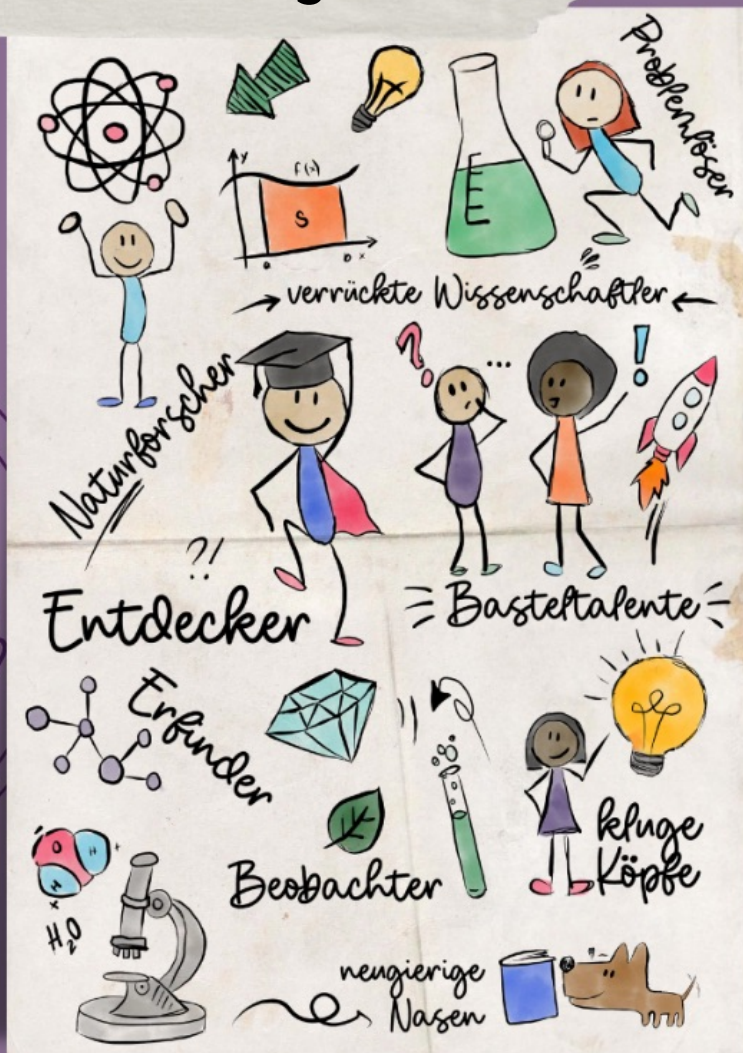 Problemlöser
y
f(x)
S
x
→ verrückte Wissenschaftler ←
? ... !
Naturforscher
?!
Entdecker
Basteltalente
Erfinder
kluge
Köpfe
Beobachter
O H
H
H₂O
neugierige
Nasen